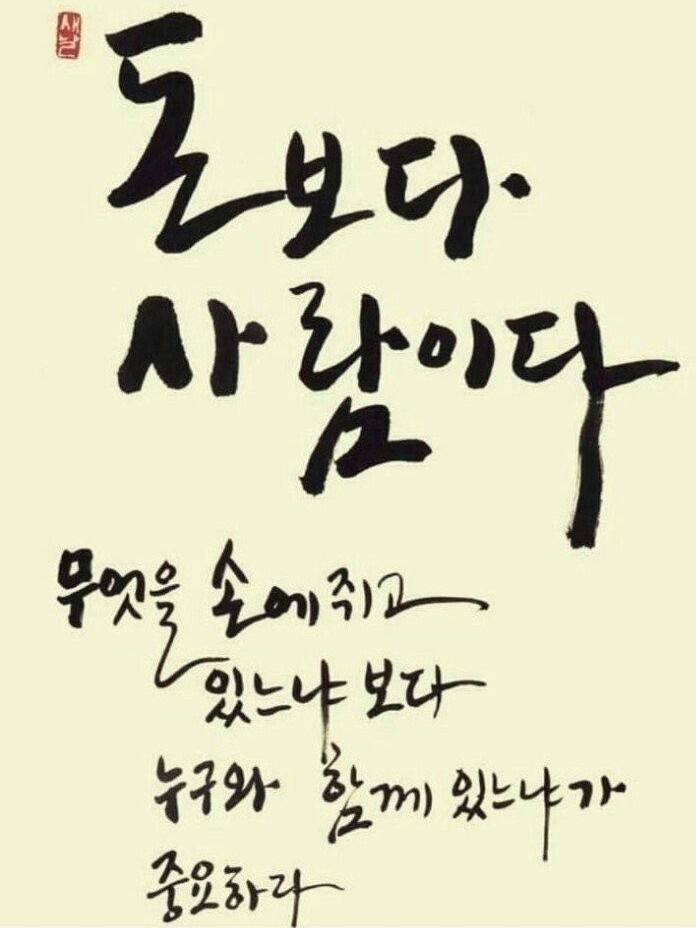 새날
돈보다
사람이다
무엇을 손에 쥐고
있느냐 보다
누구와 함께 있느냐가
중요하다